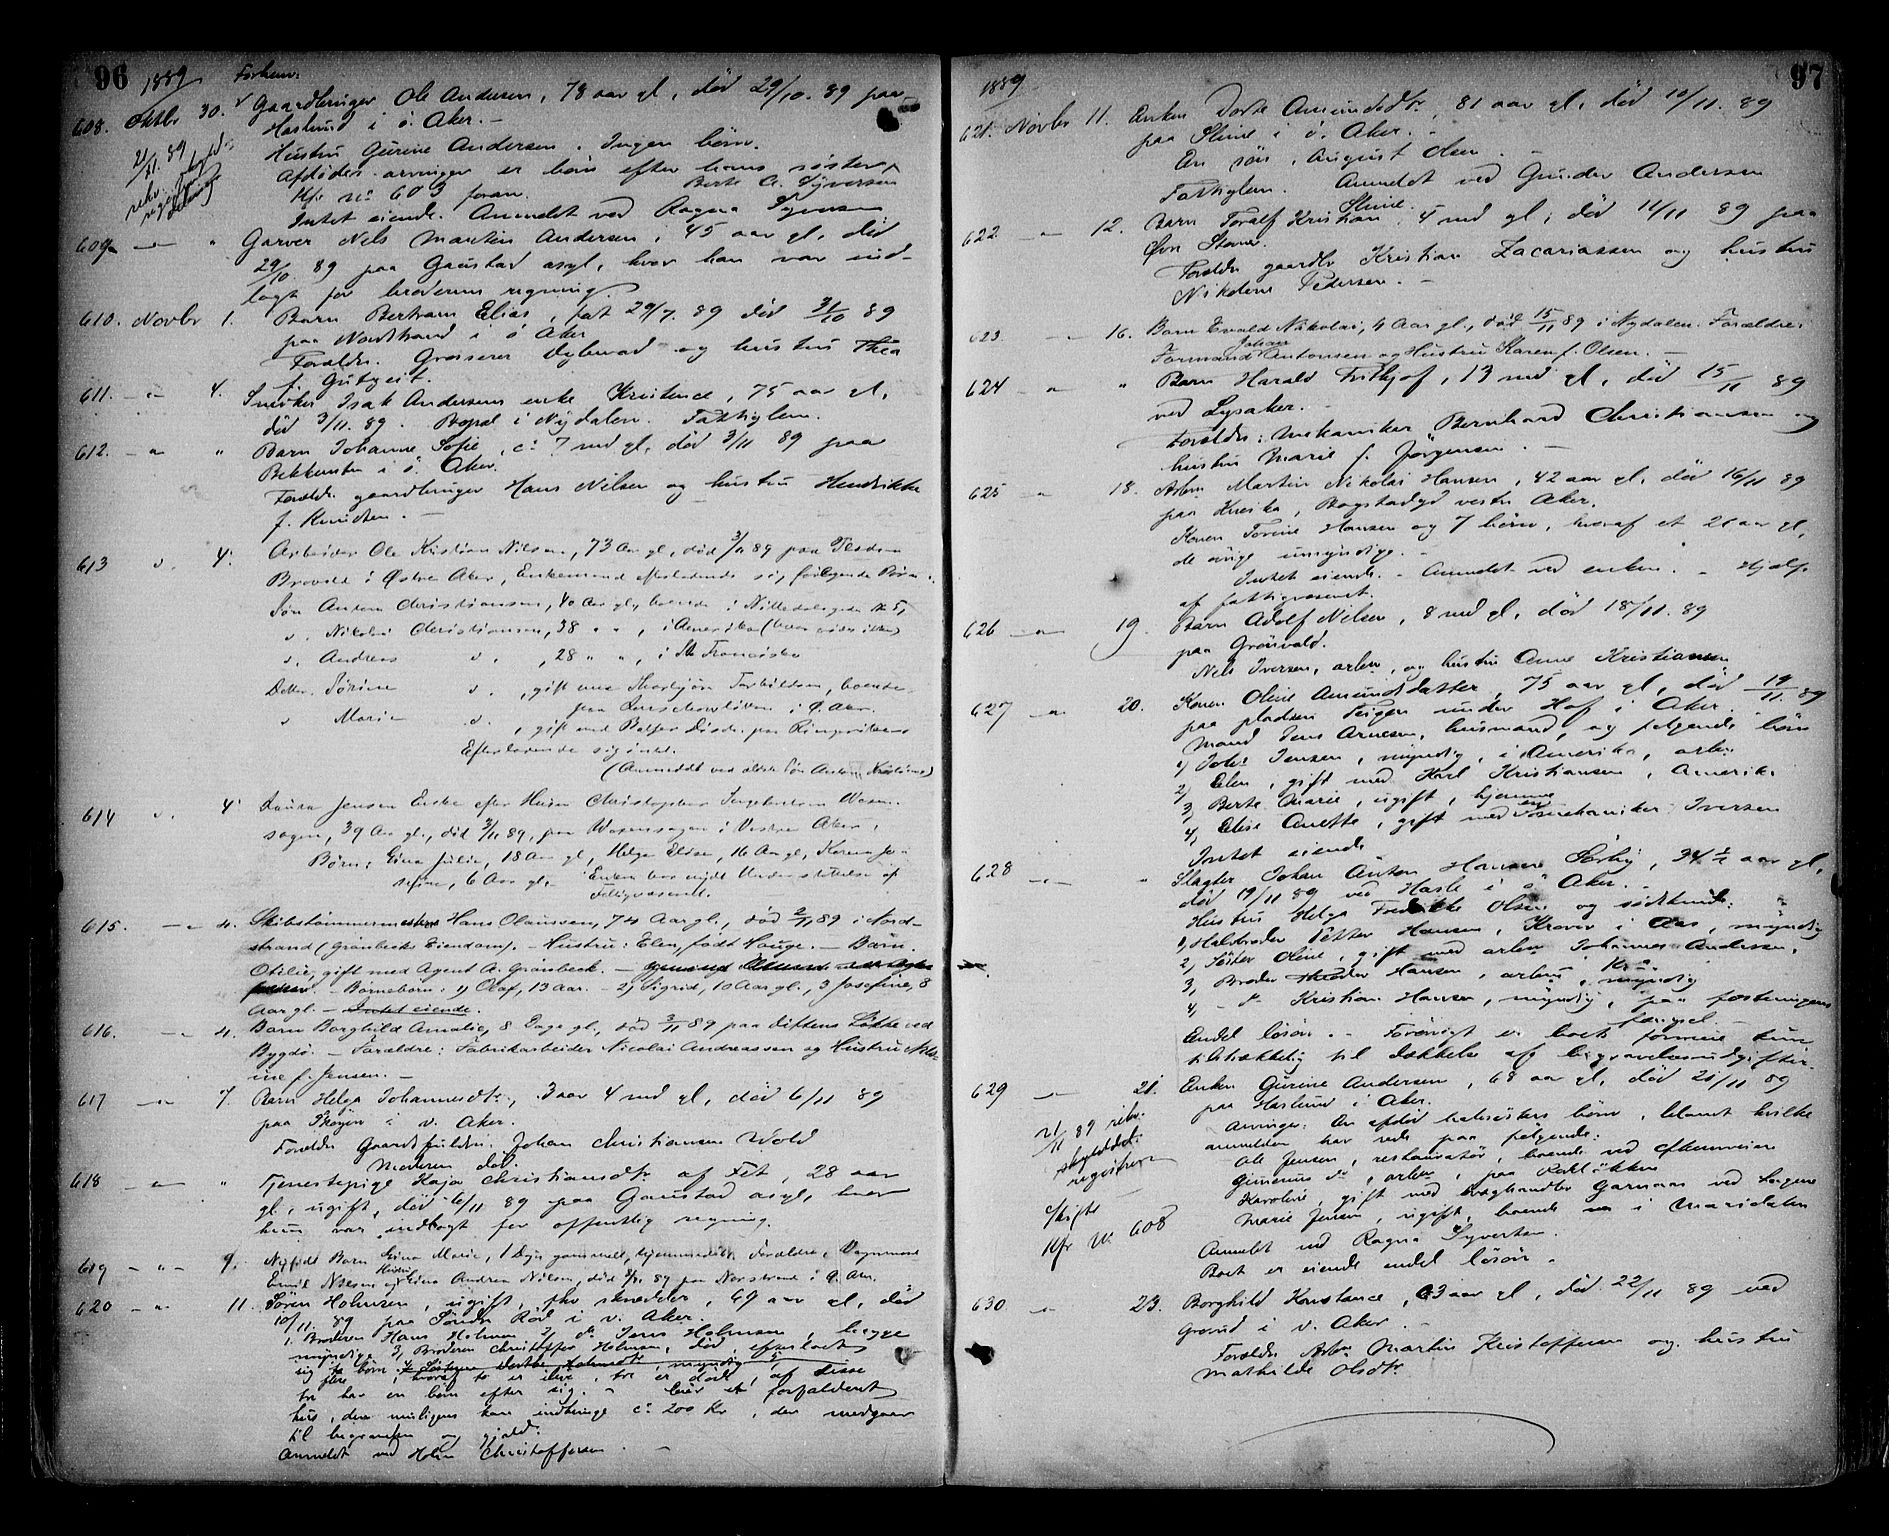 96
1889
Forhenv.
608. Oktbr 30. Gaardbruger Ole Andersen, 78 aar gl, död 29/10. 89 paa
Haslund i ö. Aker. –
Hustru Gurine Andersen. Ingen börn.
Afdödes arvinger er börn efter hans söster,
Kfr no 603 foran. Berte A. Syversen
Intet eiende. Anmeldt ved Ragna Syversen
609 – " – " Garver Nels Martin Andersen, 45 aar gl, död
29/10. 89 paa Gaustad asyl, hvor han var ind-
lagt for broderens regning.
610. Novbr 1. Barn Bertram Elias, föt 29/7. 89 död 31/10 89
paa Nordstrand i ö Aker
Foreldre. Grosserer Dybwad og hustru Thea
f. Gutzeit.
611. – " – 4. Snedker Isak Andersens enke Kristence, 75 aar gl,
död 3/11. 89. Bopæl i Nydalen. Fattiglem.
612. – " – " Barn Johanne Sofie, ca 7 md gl, död 3/11 89 paa
Bekkensten i ö. Aker.
Foreldre gaardbruger Hans Nilsen og hustru Hendrikke
f. Knudsen. –
613 " 4. Arbeider Ole Kristian Nilsen, 73 Aar gl, död 3/11 89 paa
i Östre Aker, Enkemand efterladende sig følgende Börn:
Sön Anton Christiansen, 40 Aar gl, boende i Nittedalsgaden No 5,
" Nikolai Christiansen, 38 " " , i Amerika (hvor vides ikke)
" Andreas " , 28 " " , i St Francisko
Datter Sörine " , gift med Thorbjörn Torkildsen, boende
paa i Ö. Aker.
" Marie " , gift med paa
Efterladende sig intet.
(Anmeldt ved ældste Sön Anton Kristiansen)
614 " 4. Laura Jensen Enke efter Christopher Ingebretsen
39 Aar gl, död 3/11 89, paa i Vestre Aker.
Börn: Gina Julie, 18 Aar gl, Helga Elise, 16 Aar gl, Karen Jo-
sefine, 6 Aar gl. Enken har nydt Understöttelse af
Fattigvæsenet.
615. – " – 4. Skibstömmermester Hans Olaussen, 74 Aar gl., död 2/11 89 i Nord-
strand (Grönbecks Eiendom). – Hustru: Elen, födt Hauge. – Börn.
Otilie, gift med Agent A. Grönbeck. –
– Börnebörn: 1) Olaf, 13 Aar. – 2) Sigrid, 10 Aar gl., 3 Josefine, 8
Aar gl. – Intet eiende.
616. – " – 4. Barn Borghild Amalie, 8 Dage gl., död 3/11 89 paa Lökke ved
Bygdö. – Forældre: Fabrikarbeider Nicolai Andreassen og Hustru
f. Jensen. –
617 – " – 7. Barn Helga Johannesdtr., 3 aar 4 md gl, död 6/11 89
paa Skögen i v. Aker.
Foreldre Gaardsfuldm. Johan Christiansen Wold
Moderen död.
618 – " – " Tjenestepige Kaja Christiansdtr af Fet, 28 aar
gl, ugift, död 6/11 89 paa Gaustad asyl, hvor
hun var indlagt for offentlig regning.
619 – " – 9. Nyfödt Barn Gina Marie, 1 Dage gammel, Forældre: Vognmand
Emil Nilsen og Hustru Gina Andrea Nilsen, död 8/11 89 paa Norstrand i Ö. Aker.
620 – " – 11. Sören Holmsen, ugift, fhv skredder, 69 aar gl, död
10/11. 89 paa Söndre Röd i v. Aker.
1, Broderen Hans Holmsen 2, do Jens Holmsen, begge
myndige 3, Broderen Christoffer Holmsen, död, efterladt
sig börn 4, Sösteren Dorthe Holmsdtr, myndig
flere, hvoraf to er ilive, tre er döde, af disse
tre har en börn efter sig. – Eier et forfaldent
hus, der muligens kan indbringe ca 200 Kr, der medgaar
til begravelsen og gjeld.
Anmeldt ved Christoffersen. –
97
1889
621. Novbr 11. Enken Dorte Amundsdtr, 81 aar gl, död 10/11. 89
paa Slime i ö. Aker. –
En sön, August Olsen. –
Fattiglem. Anmeldt ved Gunder Andersen
Slime.
622 – " – 12. Barn Toralf Kristian 4 md gl, död 11/11 89 paa
Övre Stovne.
Foreldre gaardbr Kristian Zacariassen og hustru
Nikoline Pedersen. –
623 – " – 16. Barn Evald Nikolai, 4 Aar gl., död 15/11 89 i Nydalen. Forældre:
Formand Johan Antonsen og Hustru Karen f. Olsen. –
624 " " Barn Harald Fritjof, 13 md gl, död 15/11 89
ved Lysaker.
Foreldre: Mekaniker Bernhard Christiansen og
hustru Marie f. Jörgensen. –
625 – " – 18. Arbm Martin Nikolai Hansen, 42 aar gl, död 16/11 89
paa Bogstad gd vestre Aker.
Konen Torine Hansen og 7 börn, hvoraf et 21 aar gl,
de övrige umyndige. –
Intet eiende. – Anmeldt ved enken. – Hjælp
af fattigvæsenet.
626 – " – 19. Barn Adolf Nilsen, 8 md gl, död 18/11. 89
paa Grönvold.
Nels Iversen, arbm, og hustru Anne Kristiansen
627 – " – 20. Konen Oline Amundsdatter, 75 aar gl, död 19/11 89
paa pladsen Teigen under Hof i Aker.
Mand Jens Arnesen, husmand, og følgende börn
1, Johs Jensen, myndig, i Amerika, arbm
2, Elen, gift med Karl Kristiansen, Amerika
3, Berte Marie, ugift, hjemme
4, Elise Anette, gift med en mekaniker Iversen
Intet eiende
628 – " – " Slagter Johan Anton Hansen Sörby, 34 1/2 aar gl,
död 19/11 89 ved Hasle i ö Aker. –
Hustru Helga Fredrikke Olsen og södskende:
1, Halvbroder Petter Hansen, Kraver i Aas, myndig
2, Söster Oline, gift med arbm Johannes Andersen,
3, Broder Hansen, arbm, myndig
4, – do Kristian Hansen, myndig, paa fæstningens
fængsel –
Endel lösöre. – Forövrigt er boets formue kun
tilstrækkelig til dækkelse af begravelsesudgifter.
629 – " – 21. Enken Gurine Andersen, 68 aar gl, död 20/11 89
paa Haslund i Aker.
Arvinger: En afdöd halvsösters börn, blandt hvilke
anmelderen har rede paa følgende:
Ole Jensen, restauratör, boende ved
Gunerius do, arbm, paa Rodelökken
Karoline, gift med Garnaas ved
Marie Jensen, ugift, boende i Maridalen
Anmeldt ved Ragna Syversen.
Boet er eiende endel lösöre.
Skifte
Kfr No 608
630 " 23. Borghild Konstance, 3 aar gl, död 22/11 89 ved
i v. Aker. –
Foreldre Arbm Martin Kristoffersen og hustru
Mathilde Olsdtr.